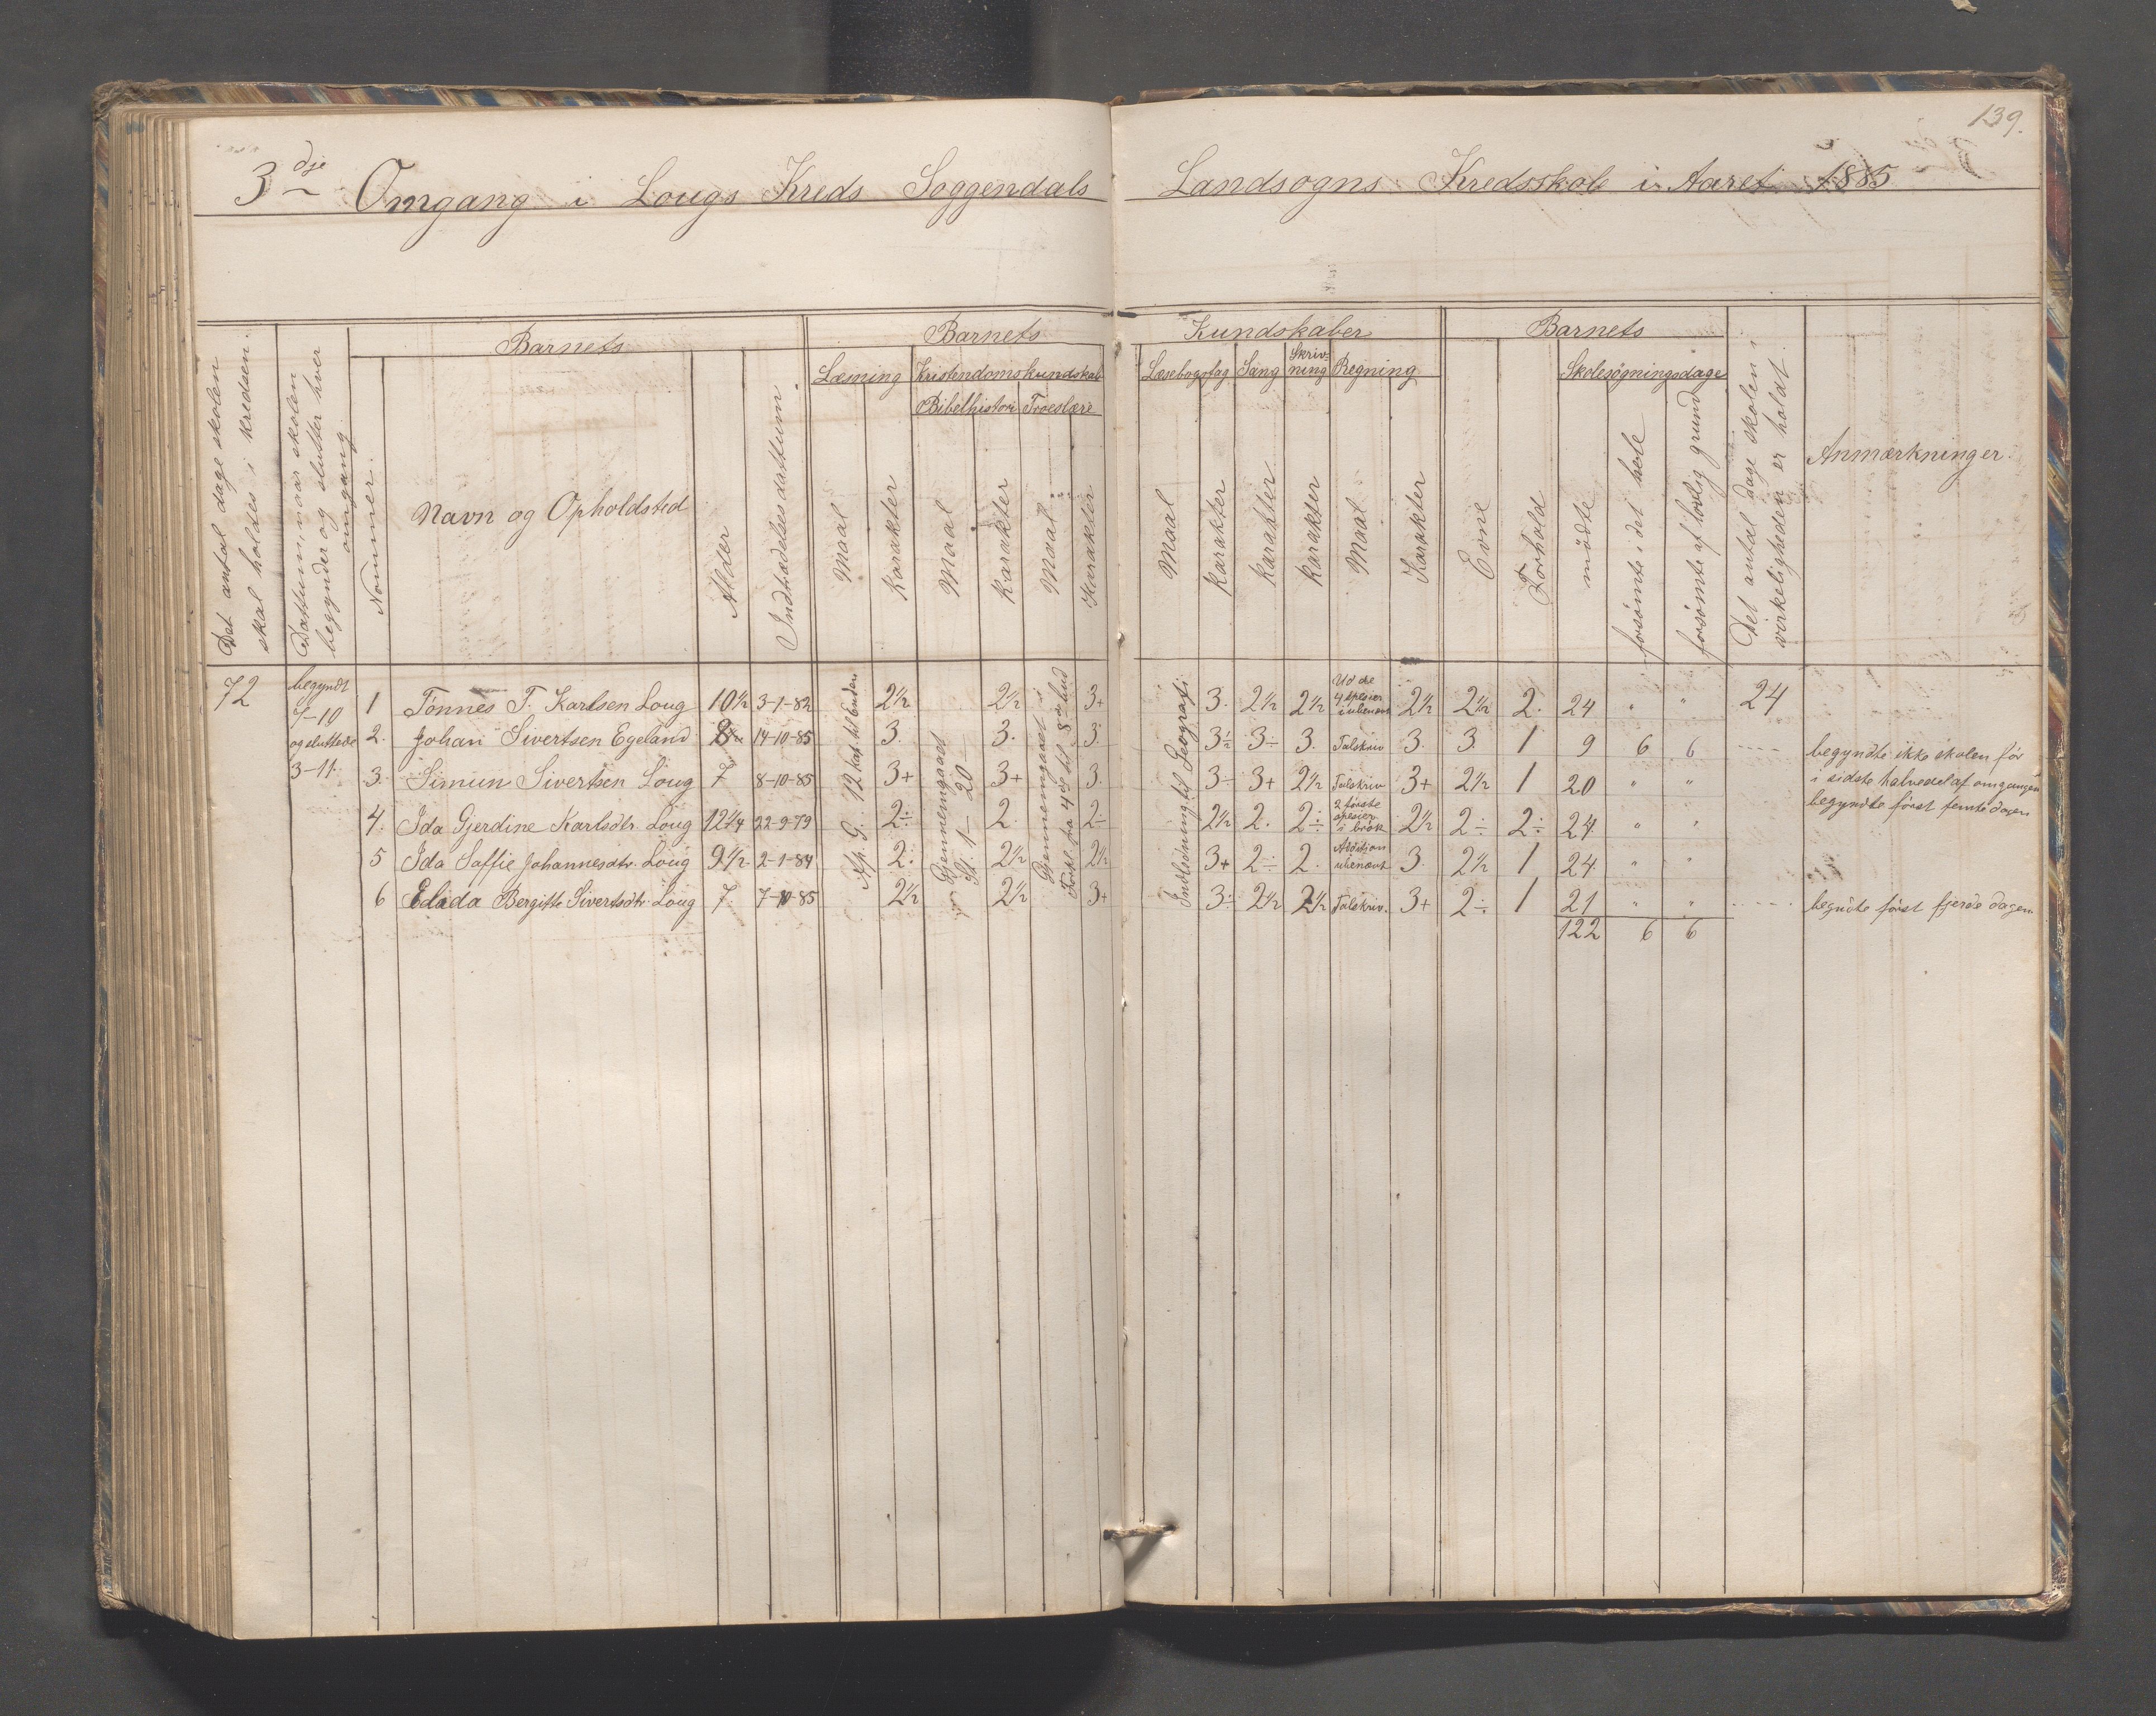 139.
3dje Omgang i Lougs Kreds Soggendals Landsogns Kredsskole i Aaret 1885
Det antal dage skolen skal holdes i kredsen.
Dattum, naar skolen begynder og slutter hver omgang
Nommer.
Barnets
Navn og Opholdsted
Alder
Indtrædelses dattum.
Barnets Kundskaber
Læsning
Maal
Karakter
Kristendomskundskab
Bibelhistori
Maal
Karakter
Troeslære
Maal
Karakter
Læsebogsfag
Maal
Karakter
Sang
Karakter
Skrivning
Karakter
Regning
Maal
Karakter
Barnets
Evne
Forhold
Skolesøgningsdage
mödte
forsömte i det hele
forsömte af lovlig grund
Det antal dage skolen i virkeligheden er holdt.
Anmærkninger.
72
begyndt 7-10 og sluttede 3-11.
Ap. G. 12 kap. til enden
Gjennemgaaet St. 1 - 20
Gjennemgaaet i Forkl. fra 4de til 8de bud
Indledning til Geografi
1 Tönnes T. Karlsen Loug 10½ 3-1-82 2½ 2½ 3+ 3. 2½ 2½ Ud de 4 spesier i ubenævt 2½ 2½ 2. 24 " " 24
2. Johan Sivertsen Egeland 8 14-10-85 3. 3. 3. 3÷ 3÷ 3. Talskriv 3. 3. 1 9 6 6 begyndte ikke skolen för i sidste halvedel af omgangen
3. Simun Sivertsen Loug 7 8-10-85 3+ 3+ 3. 3÷ 3+ 2½ Talskriv 3+ 2½ 1 20 " " begyndte först femte dagen
4. Ida Gjerdine Karlsdtr. Loug 12¼ 22-9-79 2÷ 2. 2÷ 2½ 2. 2÷ 2 förste spesier i brök 2½ 2÷ 2÷ 24 " "
5 Ida Saffie Johannesdtr. Loug 9½ 2-1-84 2. 2½ 2½ 3+ 2÷ 2. Addition ubenævt 3. 2½ 1 24 " "
6 Elada Bergitte Sivertsdtr. Loug 7. 7-10-85 2½ 2½ 3+ 3÷ 2½ 2½ Talskriv. 3+ 2÷ 1 21 " " begndte först fjerde dagen
122 6 6